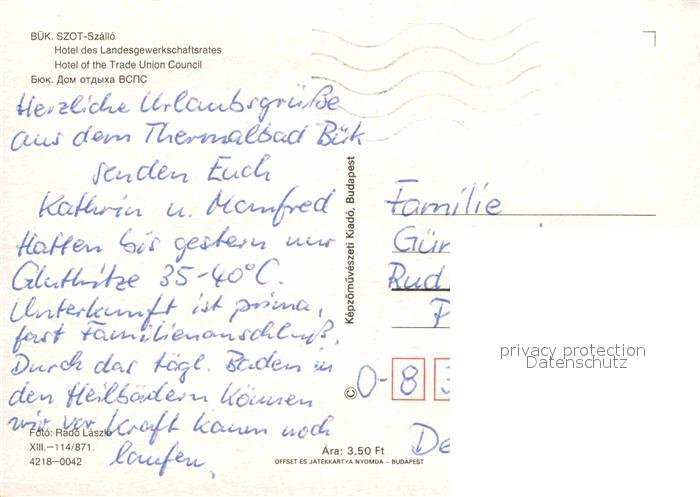 BÜK. SZOT-Szálló
Hotel des Landesgewerkschaftsrates
Hotel of the Trade Union Council
Бюк. Дом отдыха ВСПС
Herzliche Urlaubsgrüße
aus dem Thermalbad Bük
senden Euch
Kathrin u. Manfred
Hatten bis gestern nur
Gluthitze 35-40°C.
Unterkunft ist prima,
fast Familienanschluß.
Durch das tägl. Baden in
den Heilbädern können
wir vor Kraft kaum noch
laufen.
Fotó: Radó László
XIII.—114/871.
4218—0042
Képzőművészeti Kiadó, Budapest
©
Familie
Gün
Rud
P
O-8
De
Ára: 3,50 Ft
OFFSET ÉS JÁTÉKKÁRTYA NYOMDA – BUDAPEST
privacy protection
Datenschutz